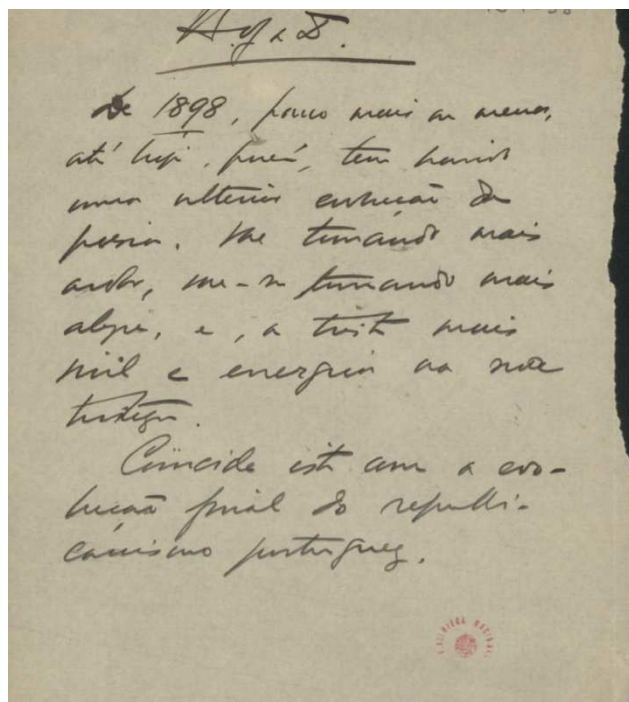 De 1898, pouco mais ou menos,
até hoje, porém, tem havido
uma ulterior evolução da
poesia. Vae tomando mais
ardor, vae-se tornando mais
alegre, e, a triste mais
viril e energica na sua
tristeza.
Coincide isto com a evo-
lução final do republi-
canismo portuguez.
BIBLIOTECA NACIONAL